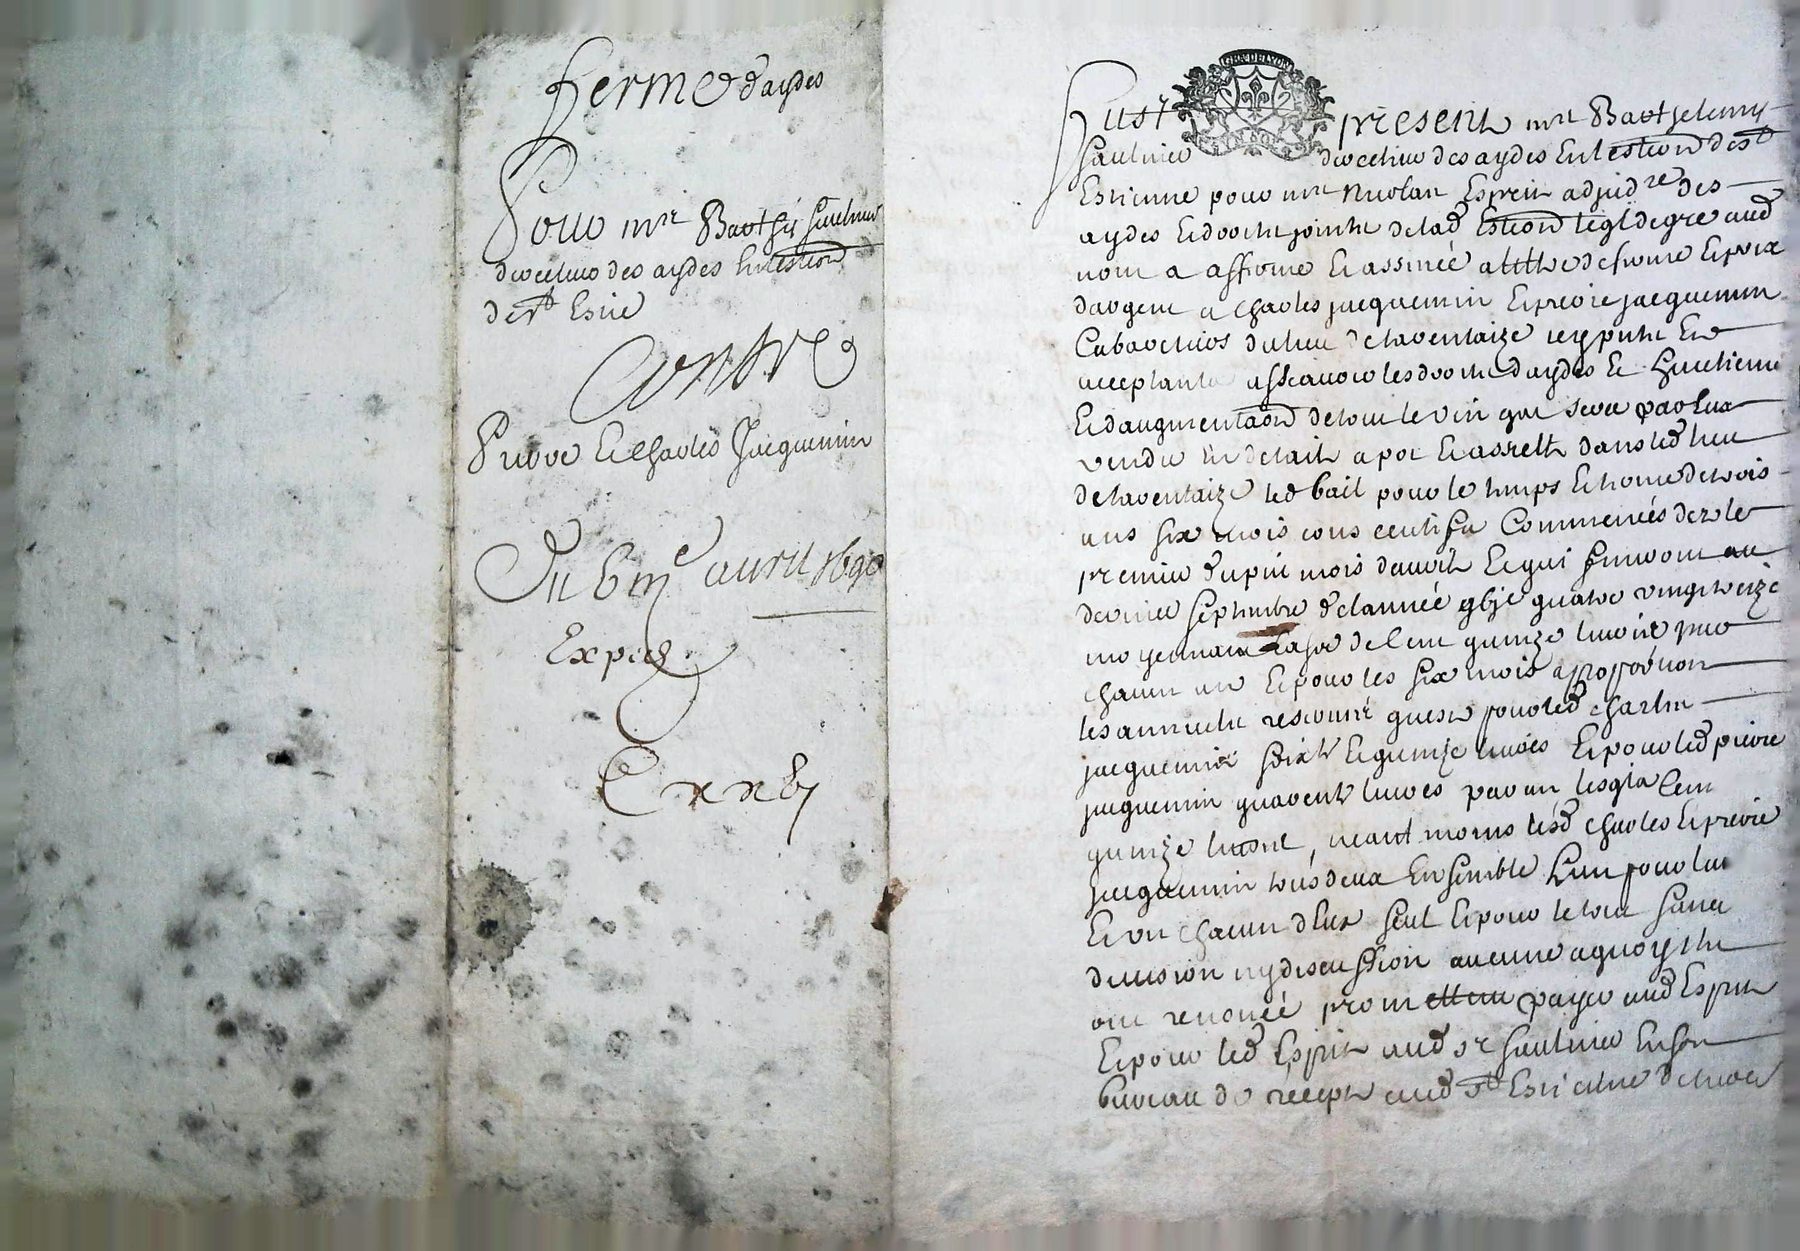 ferme d'aydes
Pour mre Barthy Saulnier
directeur des aydes En lestion
de st Esne
Contre
Pierre Et Charles Jacquemin
Du 6me avril 1690
Exped
GEN DE LYON
Fust present mre Barthelemy
Saulnier directeur des aydes En lestion de st
Estienne pour mre Nicolas Esprit adjudre des
aydes Et droits joints de lad Estion leql de gre aud
nom a afferme Et assencé a tiltre de ferme Et prix
dargent a Charles jacquemin Et pierre jacquemin
Cabaretiers du lieu de laventaize icy pntz Et
acceptants assavoir les droits daydes Et huictieme
Et daugmentaon de tout le vin qui sera par Eux
vendu En detail a pot Et assiette dans led lieu
de laventaize led bail pour le temps Et terme de trois
ans six mois consecutifs Commencés dez le
premier du pnt mois davril Et qui finiront au
dernier septembre de lannée gbjc quatre vingt treize
moyennant la fe de Cent quinze livres par
chacun an Et pour les six mois a proportion
les annuels reservés quest pour led Charles
jacquemin soixte Et quinze livres Et pour led pierre
jacquemin quarente livres par an lesqls Cent
quinze livres, neantmoins lesd Charles Et pierre
jacquemin tous deux Ensemble Lun pour lau
Et un chacun dEux seul Et pour le tout sans
division ny discussion aucune a quoy ils
ont renoncé promettent payer aud Esprit
Et pour led Esprit aud sr Saulnier En son
bureau de recepte aud st Estienne de trois